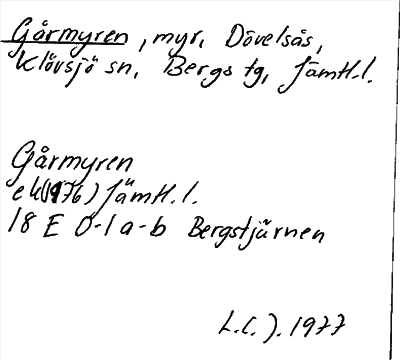 Gårmyren, myr, Dövelsås,
Klövsjö sn, Bergs tg, Jämtl.l.
Gårmyren
ek(1976) Jämtl.l.
18 E 0-1 a-b Bergstjärnen
L.C.J. 1977